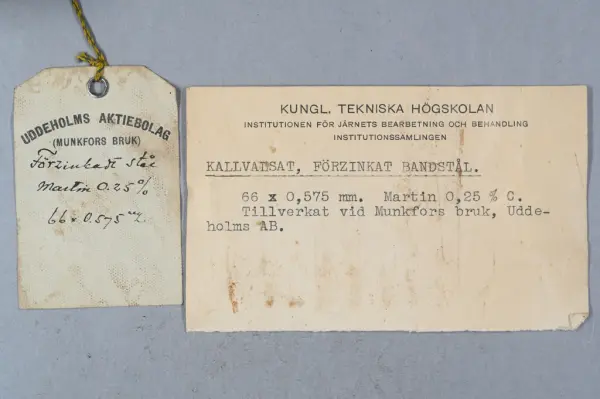 UDDEHOLMS AKTIEBOLAG
(MUNKFORS BRUK)
Förzinkadt stål
Martin 0.25 %
66 x 0.575 m/m.
KUNGL. TEKNISKA HÖGSKOLAN
INSTITUTIONEN FÖR JÄRNETS BEARBETNING OCH BEHANDLING
INSTITUTIONSSAMLINGEN
KALLVALSAT, FÖRZINKAT BANDSTÅL.
66 x 0,575 mm. Martin 0,25 % C.
Tillverkat vid Munkfors bruk, Udde-
holms AB.